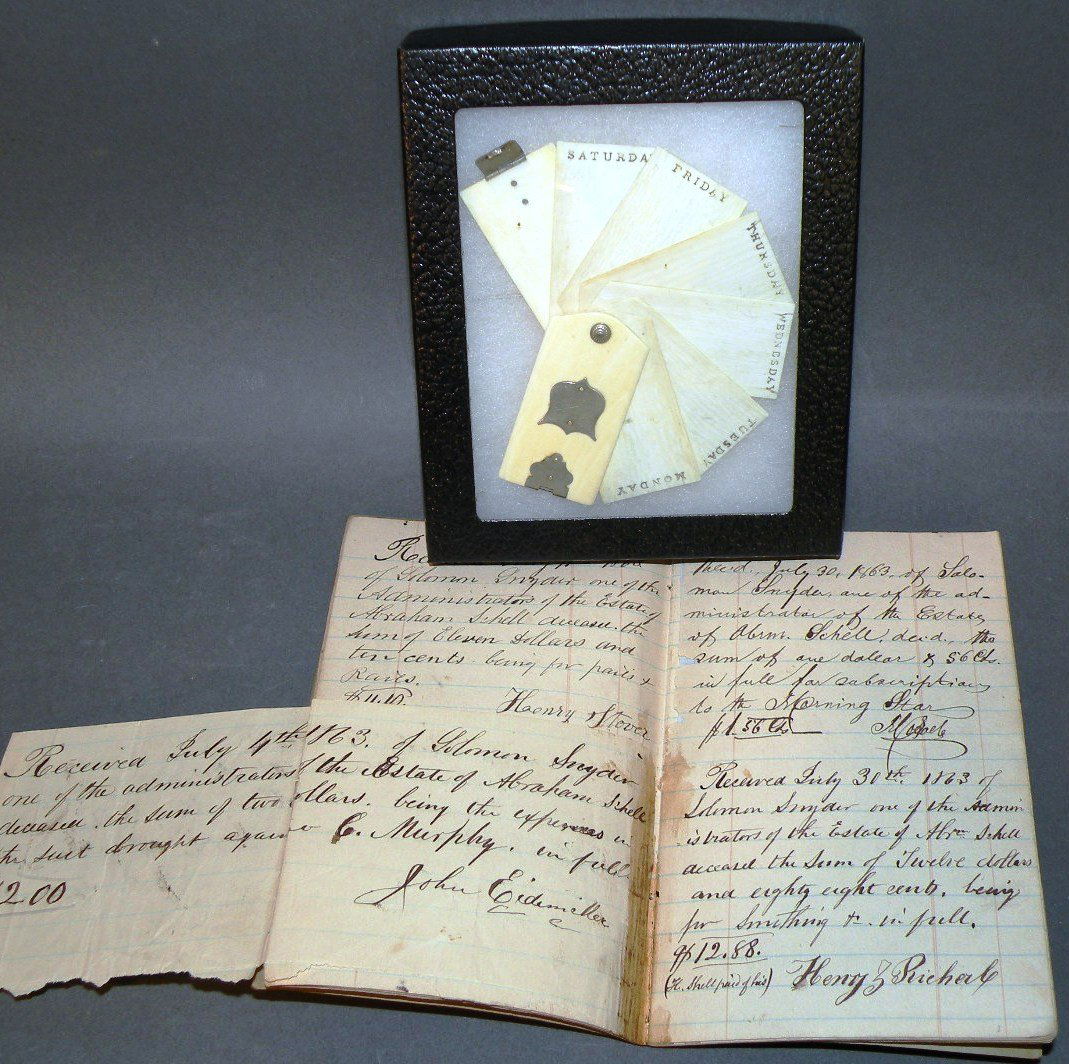 SATURDA
FRIDAY
THURSDAY
WEDNESDAY
TUESDAY
MONDAY
of Solomon Snyder one of the
Administrators of the Estate of
Abraham Schell deceased the
sum of Eleven Dollars and
ten cents being for pails &
Rails.
$11.10.
Henry Stover
Received July 4th 1863. of Solomon Snyder
one of the administrators of the Estate of Abraham Schell
deceased. the sum of two dollars. being the expenses in
the suit brought against C. Murphy. in full
2.00
John Eidmiller
Recd. July 30, 1863, of Solo-
mon Snyder, one of the ad-
ministrator of the Estate
of Abrm. Schell, decd, the
sum of one dollar & 56 Cts.
in full for subscription
to the Morning Star
$1.56 Cts
Received July 30th. 1863 of
Solomon Snyder one of the Admin
istrators of the Estate of Abrm Schell
deceased the sum of Twelve dollars
and eighty eight cents, being
for Smithing &. in full.
$12.88.
(H. Shell paid of his)
Henry